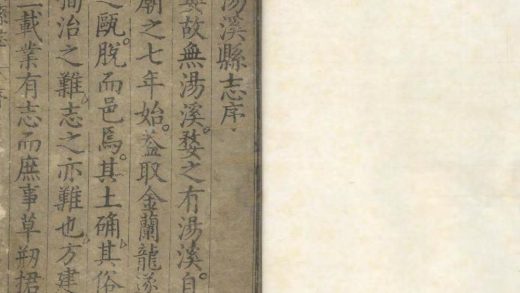 湯溪縣志序
婺故無湯溪婺之有湯溪自
廟之七年始葢取金蘭龍遂
之甌脫而邑焉其土确其俗
治之難志之亦難也方建
載業有志而庶事草剏捃